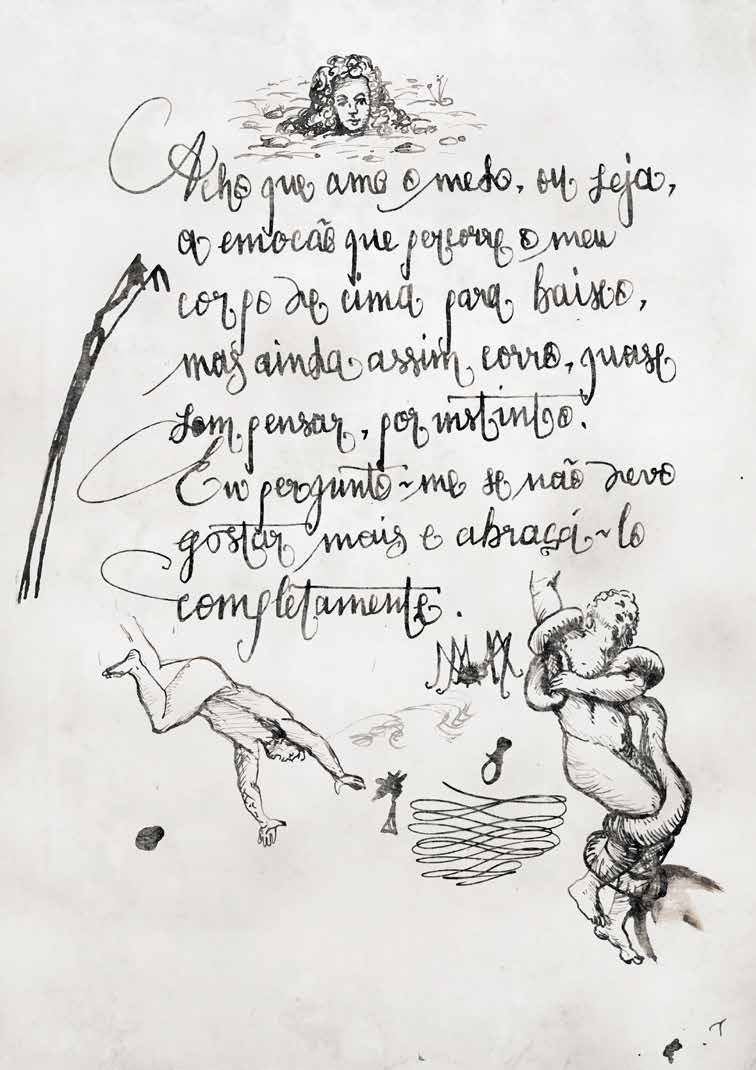 Acho que amo o medo, ou seja,
a emocão que percorre o meu
corpo de cima para baixo,
mas ainda assim corro, quase
sem pensar, por instinto.
Eu pergunto-me se não devo
gostar mais e abraçá-lo
completamente.